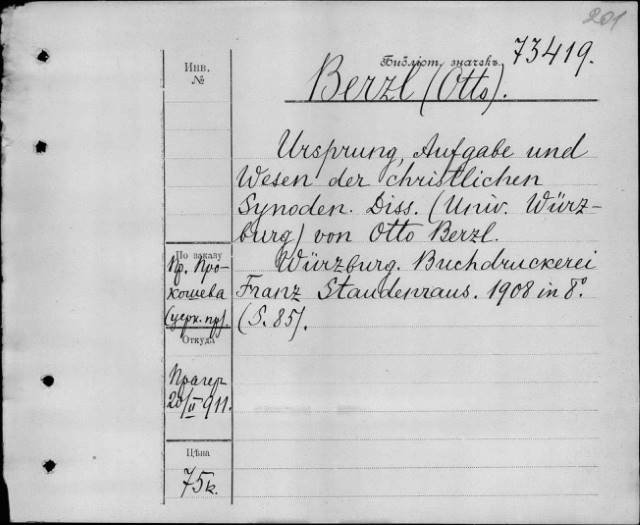 201
Инв.
№
Библіот. значекъ 73419.
Berzl (Otto).
Ursprung, Aufgabe und
Wesen der christlichen
Synoden. Diss. (Univ. Würz-
burg) von Otto Berzl.
Würzburg. Buchdruckerei
Franz Staudenraus. 1908 in 8º.
(S. 85).
По заказу
Пр. Про-
кошева
(церк. пр).
Откуда
Прагер
20/II 911.
Цѣна
75к.